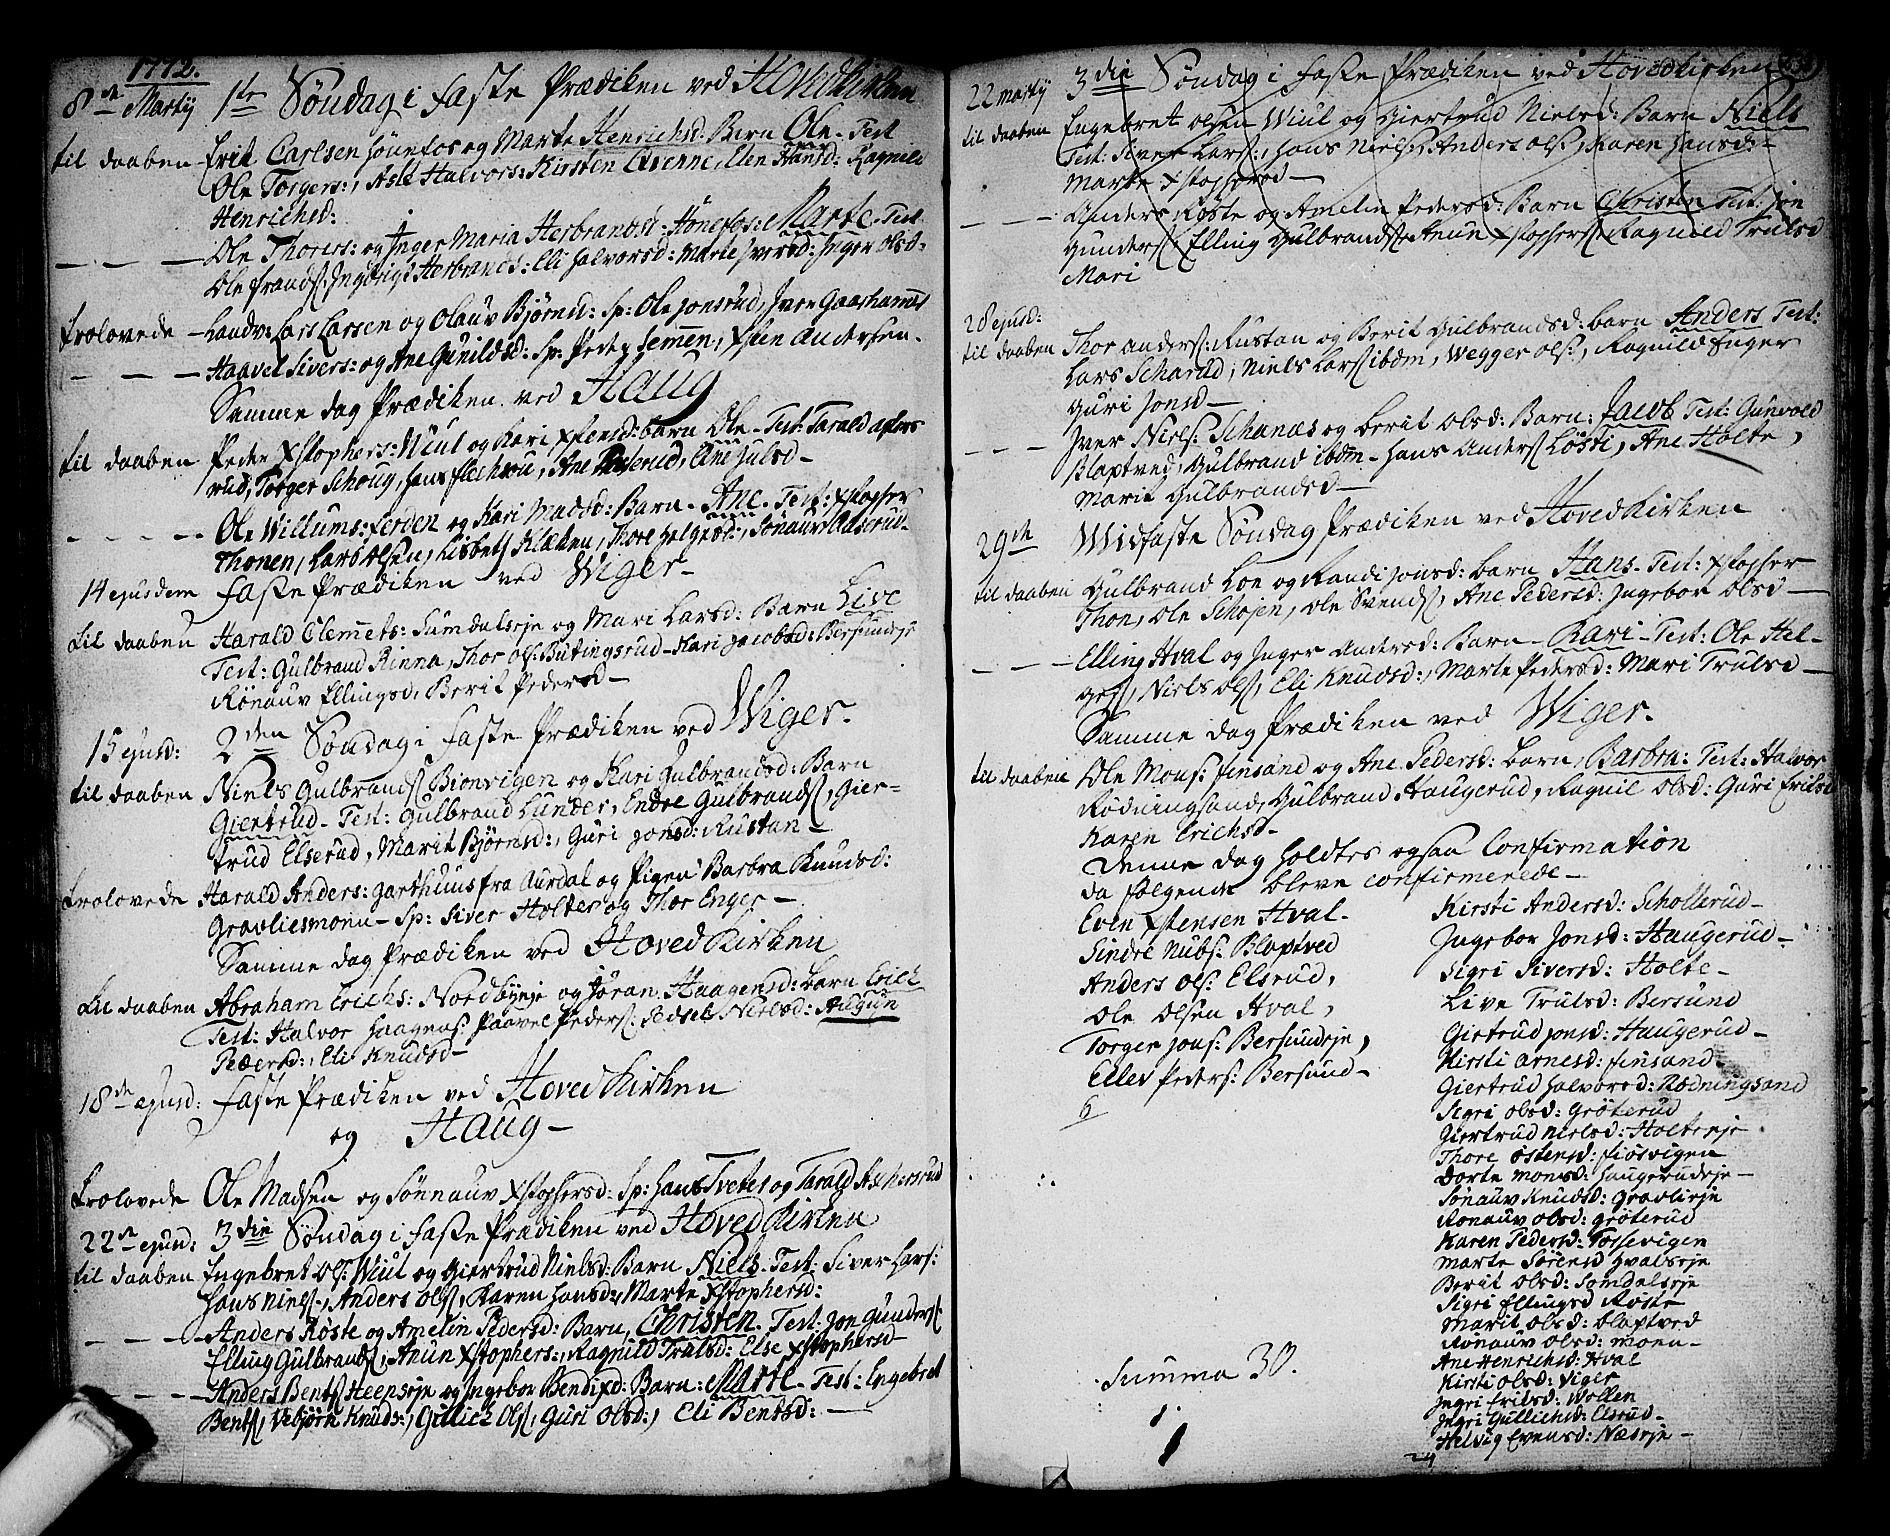 1772.
8de Martij 1te Söndag i Faste Prædiken ved Hovedkirken
til daaben Erik Carlsen Hönnefos og Marte Henrichsd: Barn Ole. Test
Ole Torgers:, Asle Halvors: Kirsten Ellen Hansd: Ragnild
Henrichsd:
Ole Thores: og Inger Maria Herbrandsd: Hönefos: Marte. Test
Ole Frands: Ingbrigt Herbrands: Eli Halvorsd: Marte Iversd: Inger Olsd.
trolovede Landv: Lars Larsen og Olauv Bjørnsd: Sp: Ole Jonsrud, Iver Gaarhammer
Haavel Sivers: og Ane Gunildsd: Sp: Peder Semmen, Xsten Andersen.
Samme dag Prædiken ved Haug
til daaben Peder Xstophers: Wiul og Kari Xstensd: barn Ole. Test: Tarald Askers
rud, Torger Schoug, Hans Fleskeru, Ane Julsd
Ole Willums: Ferden og Kari Madsd: Barn. Ane. Test: Xstopher
Thonen, Lars Olsen, Lisbet Klæken, Thore Helgesd:, Sönauv Aaserud
14 ejusdem Faste Prædiken ved Wiger.
til daaben Harald Clemets: Sumdalseje og Mari Larsd: Barn Live
Test: Gulbrand Rinna, Thor Ols: Butingsrud Kari Jacobsd: Bersundeje
Rönauv Ellingsd, Berit Pedersd
15 ejusd: 2den Söndag i Faste Prædiken ved Wiger.
til daaben Niels Gulbrands: Bionvigen og Kari Gulbrandsd: Barn
Giertrud. Test: Gulbrand Lunder, Endre Gulbrands:, Gier=
trud Elserud, Marit Bjørnsd:, Guri Jonsd: Rustan
trolovede Harald Anders: Garthuus fra Aurdal og Pigen Barbra Knudsd:
Gravliesmoen Sp: Siver Holte og Thor Enger
Samme dag Prædiken ved Hoved Kirken
til daaben Abraham Erichs: Nordbyeje og Jöran Haagensd: barn Erich
Test: Halvor Haagens: Paavel Peders: Sidsel Nielsd: Augun
Pedersd:, Eli Knudsd
18de ejusd: Faste Prædiken ved Hoved Kirken
og Haug
trolovede Ole Madsen og Sönnauv Xstophersd: Sp: Hans Tveter og Tarald Askersrud
22de ejusd: 3die Söndag i Faste Prædiken ved Hoved Kirken
til daaben Ingebret Ols: Wiul og Giertrud Nielsd: Barn Niels. Test: Siver Lars:
Hans Niels:, Anders Ols:, Karen Hansd:, Marte Xstophersd:
Anders Röste og Amelin Pedersd: Barn, Christen. Test: Jon Gunders:
Elling Gulbrands:, Anun Xstophers:, Ragnild Trulsd: Else Xstophersd
Anders Bents: Heenseje og Ingebor Bendixd: Barn: Marte. Test: Engebret
Bents:, Vebjørn Knuds:, Gullich Ols:, Guri Olsd:, Eli Bentsd:
22 martij 3die Söndag i Faste Prædiken ved Hovedkirken
til daaben Engebret Olsen Wiul og Giertrud Nielsd: Barn Niels
Test: Siver Lars:, Hans Niels:, Anders Ols:, Karen Hansd:
Marte Xstophersd
Anders Röste og Amelin Pedersd: Barn Christen Test: Jon
Gunders: Elling Gulbrands: Anun Xstophers: Ragnild Trulsd
Mari
28 ejusd:
til daaben Thor Anders: Rustan og Berit Gulbrandsd: barn Anders Test:
Lars Scharud, Niels Lars: ibdm, Wegger Ols:, Ragnild Enger
Guri Jonsd
Iver Niels: Schanæs og Berit Olsd: Barn: Jacob Test: Gunvold
Blaptved, Gulbrand ibdm Hans Anders: Lösti, Ane Holte,
Marit Gulbrandsd
29de Midfaste Söndag Prædiken ved Hoved Kirken
til daaben Gulbrand Loe og Randi Jonsd: barn Hans. Test: Xstopher
Thon, Ole Schöjen, Ole Svends:, Ane Pedersd: Ingebor Olsd
Elling Hval og Inger Andersd: Barn Kari Test: Ole Hel=
ges:, Niels Ols:, Eli Knudsd:, Marte Pedersd: Mari Trulsd
Samme dag Prædiken ved Wiger.
til daaben Ole Mons: Finsand og Ane Pedersd: barn, Barbra: Test: Halvor
Rödningsand, Gulbrand Haugerud, Ragnil Olsd: Guri Erichsd
Karen Erichsd
Denne dag holdtes ogsaa Confirmation
da følgende bleve confirmerede
Even Xstensen Hval.
Sindre Nubs: Blaptved
Anders Ols: Elsrud,
Ole Olsen Hval,
Torger Jons: Bersundeje,
Ellev Peders: Bersund
6
Kirsti Andersd: Schollerud
Ingebor Jonsd: Haugerud
Sigri Siversd: Holte
Live Trulsd: Bersund
Giertrud Jonsd: Haugerud
Kirsti Arnesd: Finsand
Giertrud Halvorsd: Rødningsand
Sigri Olsd: Gröterud
Giertrud Nielsd: Holteeje
Thore Östensd: Fiösvigen
Dorte Monsd: Haugerudeje
Sönauv Knudsd: Gravlieje
Rönauv Olsd: Gröterud
Karen Pedersd: Tossevigen
Marte Sörensd Hvalseje
Berit Olsd: Somdalseje
Sigri Ellingsd Röste
Marit Olsd: Blaptved
Rönauv Olsd: Moen
Ane Henrichsd: Hval
Kirsti Olsd: Viger
Ingri Erilsd: Wollen
Ingri Gullichsd: Elsrud
Helvig Evensd: Næseje
24
Summa 30.